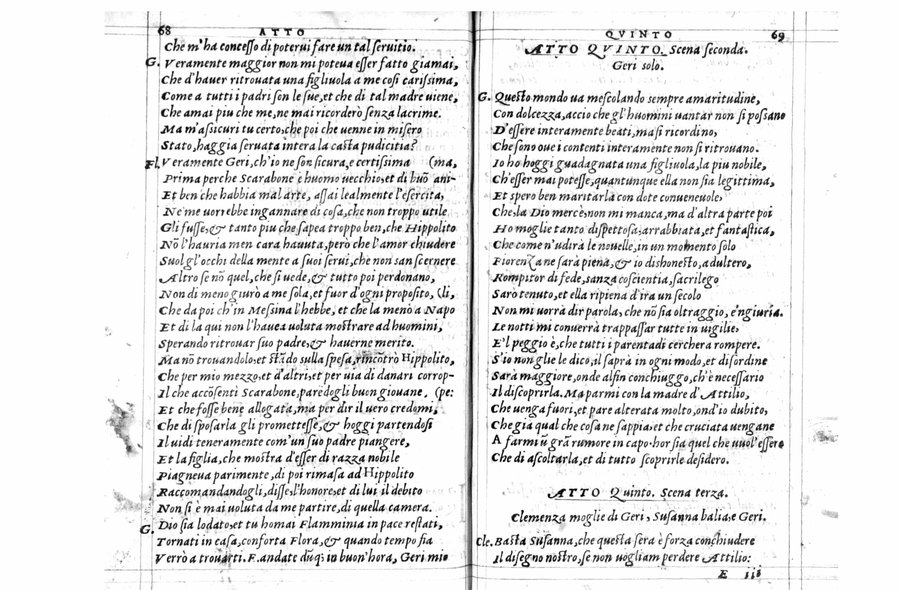 68 ATTO
Che m'ha concesso di poterui fare un tal seruitio.
G. Veramente maggior non mi poteua esser fatto giamai,
Che d'hauer ritrouata una figliuola a me cosi carissima,
Come a tutti i padri son le sue, et che di tal madre uiene,
Che amai piu che me, ne mai ricorderò senza lacrime.
Ma m'assicuri tu certo, che poi che uenne in misero
Stato, haggia seruata intera la casta pudicitia?
Fl. Veramente Geri, ch'io ne son sicura, e certissima (ma,
Prima perche Scarabone è huomo uecchio, et di buõ ani-
Et ben che habbia mal arte, assai lealmente l'esercita,
Ne me uorrebbe ingannare di cosa, che non troppo utile
Gli fusse, & tanto piu che sapea troppo ben, che Hippolito
Nõ l'hauria men cara hauuta, però che l'amor chiudere
Suol gl'occhi della mente a suoi serui, che non scernere
Altro se nõ quel, che si uede, & tutto poi perdonano,
Non di meno giurò a me sola, et fuor d'ogni proposito, (li,
Che da poi ch'in Messina l'hebbe, et che la menò a Napo
Et di la qui non l'hauea uoluta mostrare ad huomini,
Sperando ritrouar suo padre, & hauerne merito.
Ma nõ trouandolo, et stãdo sulla spesa, rincõtrò Hippolito,
Che per mio mezzo, et d'altri, et per uia di danari corrop-
Il che accõsenti Scarabone, paredogli buon giouane, (pe:
Et che fosse bene allogata, ma per dir il uero credomi,
Che di sposarla gli promettesse, & hoggi partendosi
Il uidi teneramente com'un suo padre piangere,
Et la figlia, che mostra d'esser di razza nobile
Piagneua parimente, di poi rimasa ad Hippolito
Raccomandandogli, disse, l'honore, et di lui il debito
Non si è mai uoluta da me partire, di quella camera.
G. Dio sia lodato, et tu homai Flamminia in pace restati,
Tornati in casa, conforta Flora, & quando tempo sia
Verrò a trouarti. F. andate dũq; in buon'hora, Geri mio
QVINTO 69
ATTO QVINTO. Scena seconda.
Geri solo.
G. Questo mondo ua mescolando sempre amaritudine,
Con dolcezza, accio che gl'huomini uantar non si possano
D'essere interamente beati, ma si ricordino,
Che sono oue i contenti interamente non si ritrouano.
Io ho hoggi guadagnata una figliuola, la piu nobile,
Ch'esser mai potesse, quantunque ella non sia legittima,
Et spero ben maritarla con dote conueneuole,
Che, la Dio mercè, non mi manca, ma d'altra parte poi
Ho moglie tanto dispettosa, arrabbiata, et fantastica,
Che come n'udirà le nouelle, in un momento solo
Fiorenza ne sarà piena, & io dishonesto, adultero,
Rompitor di fede, sanza coscientia, sacrilego
Sarò tenuto, et ella ripiena d'ira un secolo
Non mi uorrà dir parola, che nõ sia oltraggio, e'ngiuria.
Le notti mi conuerrà trappassar tutte in uigilie,
E'l peggio è, che tutti i parentadi cercherà rompere.
S'io non glie le dico, il saprà in ogni modo, et disordine
Sarà maggiore, onde alfin conchiuggo, ch'è necessario
Il discoprirla. Ma parmi con la madre d'Attilio,
Che uenga fuori, et pare alterata molto, ond'io dubito,
Che gia qual che cosa ne sappia, et che cruciata uengane
A farmi ũ grã rumore in capo. hor sia quel che uuol'essere
Che di ascoltarla, et di tutto scoprirle desidero.
ATTO Quinto. Scena terza.
Clemenza moglie di Geri, Susanna balia, e Geri.
Cle. Basta Susanna, che questa sera è forza conchiudere
Il disegno nostro, se non uogliam perdere Attilio:
E iii